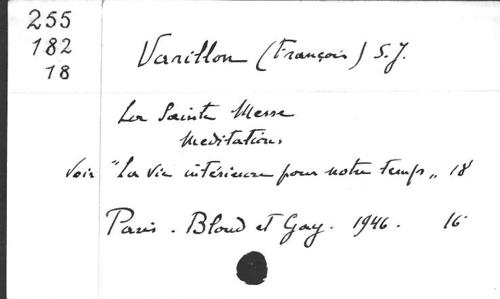 255
182
18
Varillon (François) S.J.
La Sainte Messe
Meditations
Voir "La vie intérieure pour notre temps„ 18
Paris. Bloud et Gay. 1946. 16